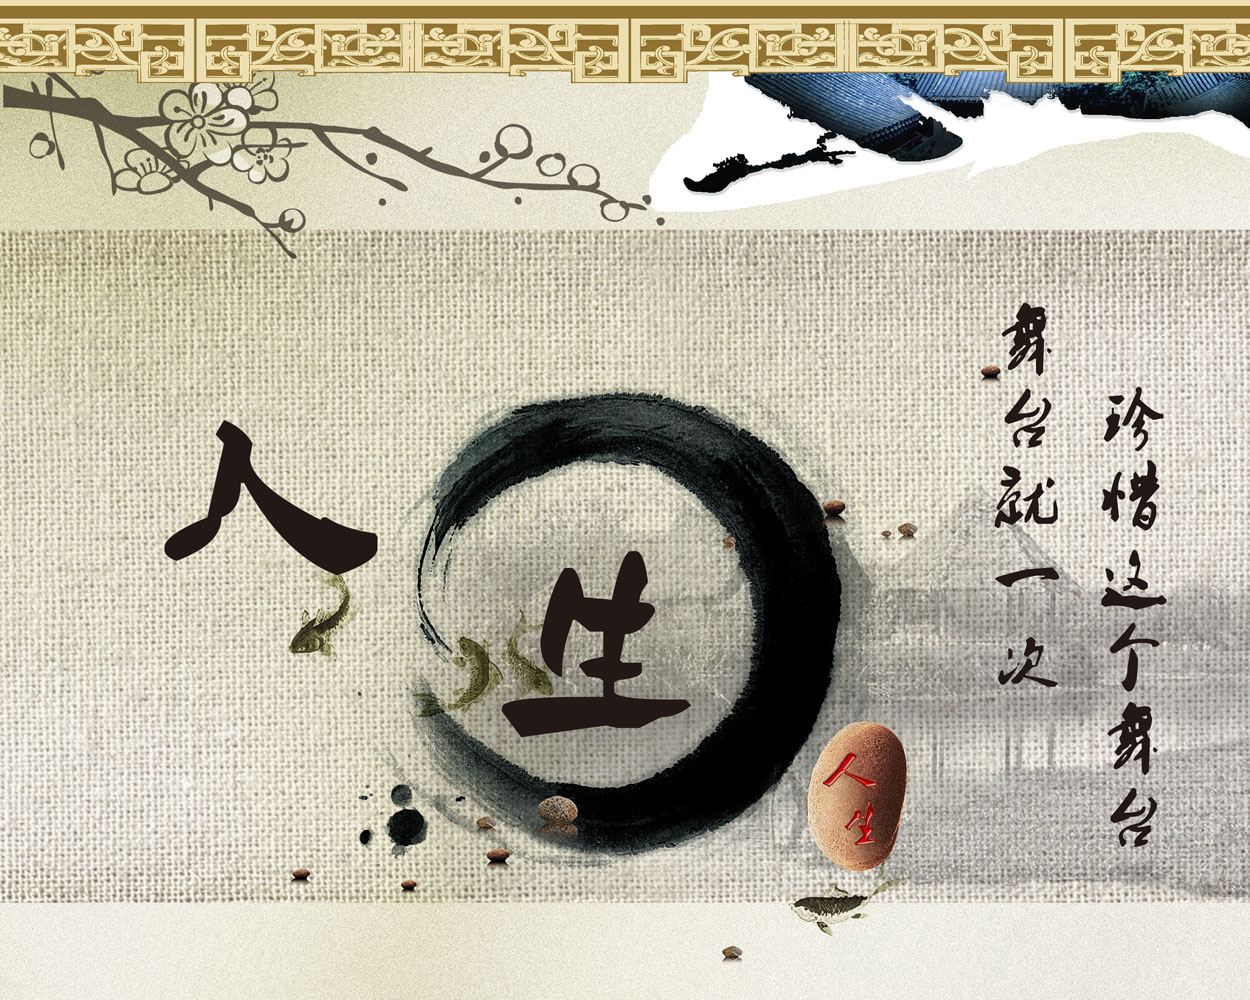 人生
珍惜这个舞台
舞台就一次
人生